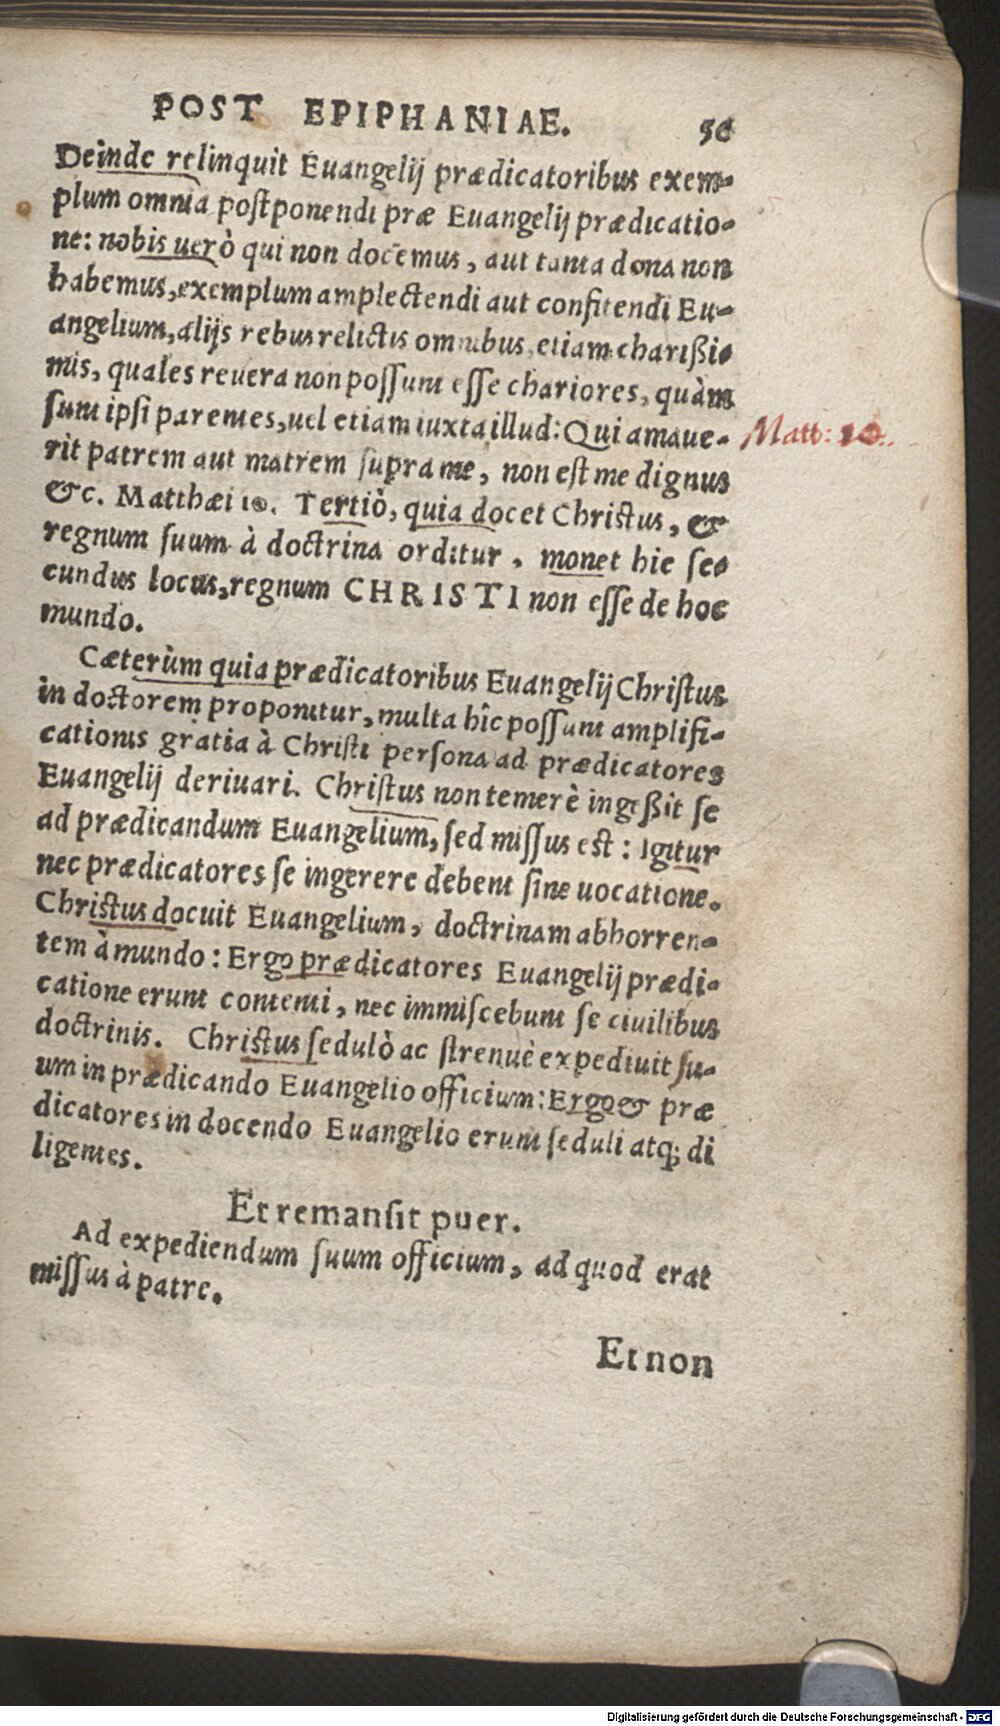 POST EPIPHANIAE. 56
Deinde relinquit Euangelij prædicatoribus exem-
plum omnia postponendi præ Euangelij prædicatio-
ne: nobis uerò qui non docemus, aut tanta dona non
habemus, exemplum amplectendi aut confitendi Eu-
angelium, alijs rebus relictis omnibus, etiam charißi-
mis, quales reuera non possunt esse chariores, quàm
sunt ipsi parentes, uel etiam iuxta illud: Qui amaue-
rit patrem aut matrem supra me, non est me dignus
&c. Matthæi 10. Tertiò, quia docet Christus, &
regnum suum à doctrina orditur, monet hic se-
cundus locus, regnum CHRISTI non esse de hoc
mundo.
Matt: 10.
Cæterùm quia prædicatoribus Euangelij Christus
in doctorem proponitur, multa hîc possunt amplifi-
cationis gratia à Christi persona ad prædicatores
Euangelij deriuari. Christus non temerè ingeßit se
ad prædicandum Euangelium, sed missus est: Igitur
nec prædicatores se ingerere debent sine uocatione.
Christus docuit Euangelium, doctrinam abhorren-
tem à mundo: Ergo prædicatores Euangelij prædi-
catione erunt contenti, nec immiscebunt se ciuilibus
doctrinis. Christus sedulò ac strenuè expediuit su-
um in prædicando Euangelio officium: Ergo & præ
dicatores in docendo Euangelio erunt seduli atq; di
ligentes.
Et remansit puer.
Ad expediendum suum officium, ad quod erat
missus à patre.
Et non
Digitalisierung gefördert durch die Deutsche Forschungsgemeinschaft - DFG